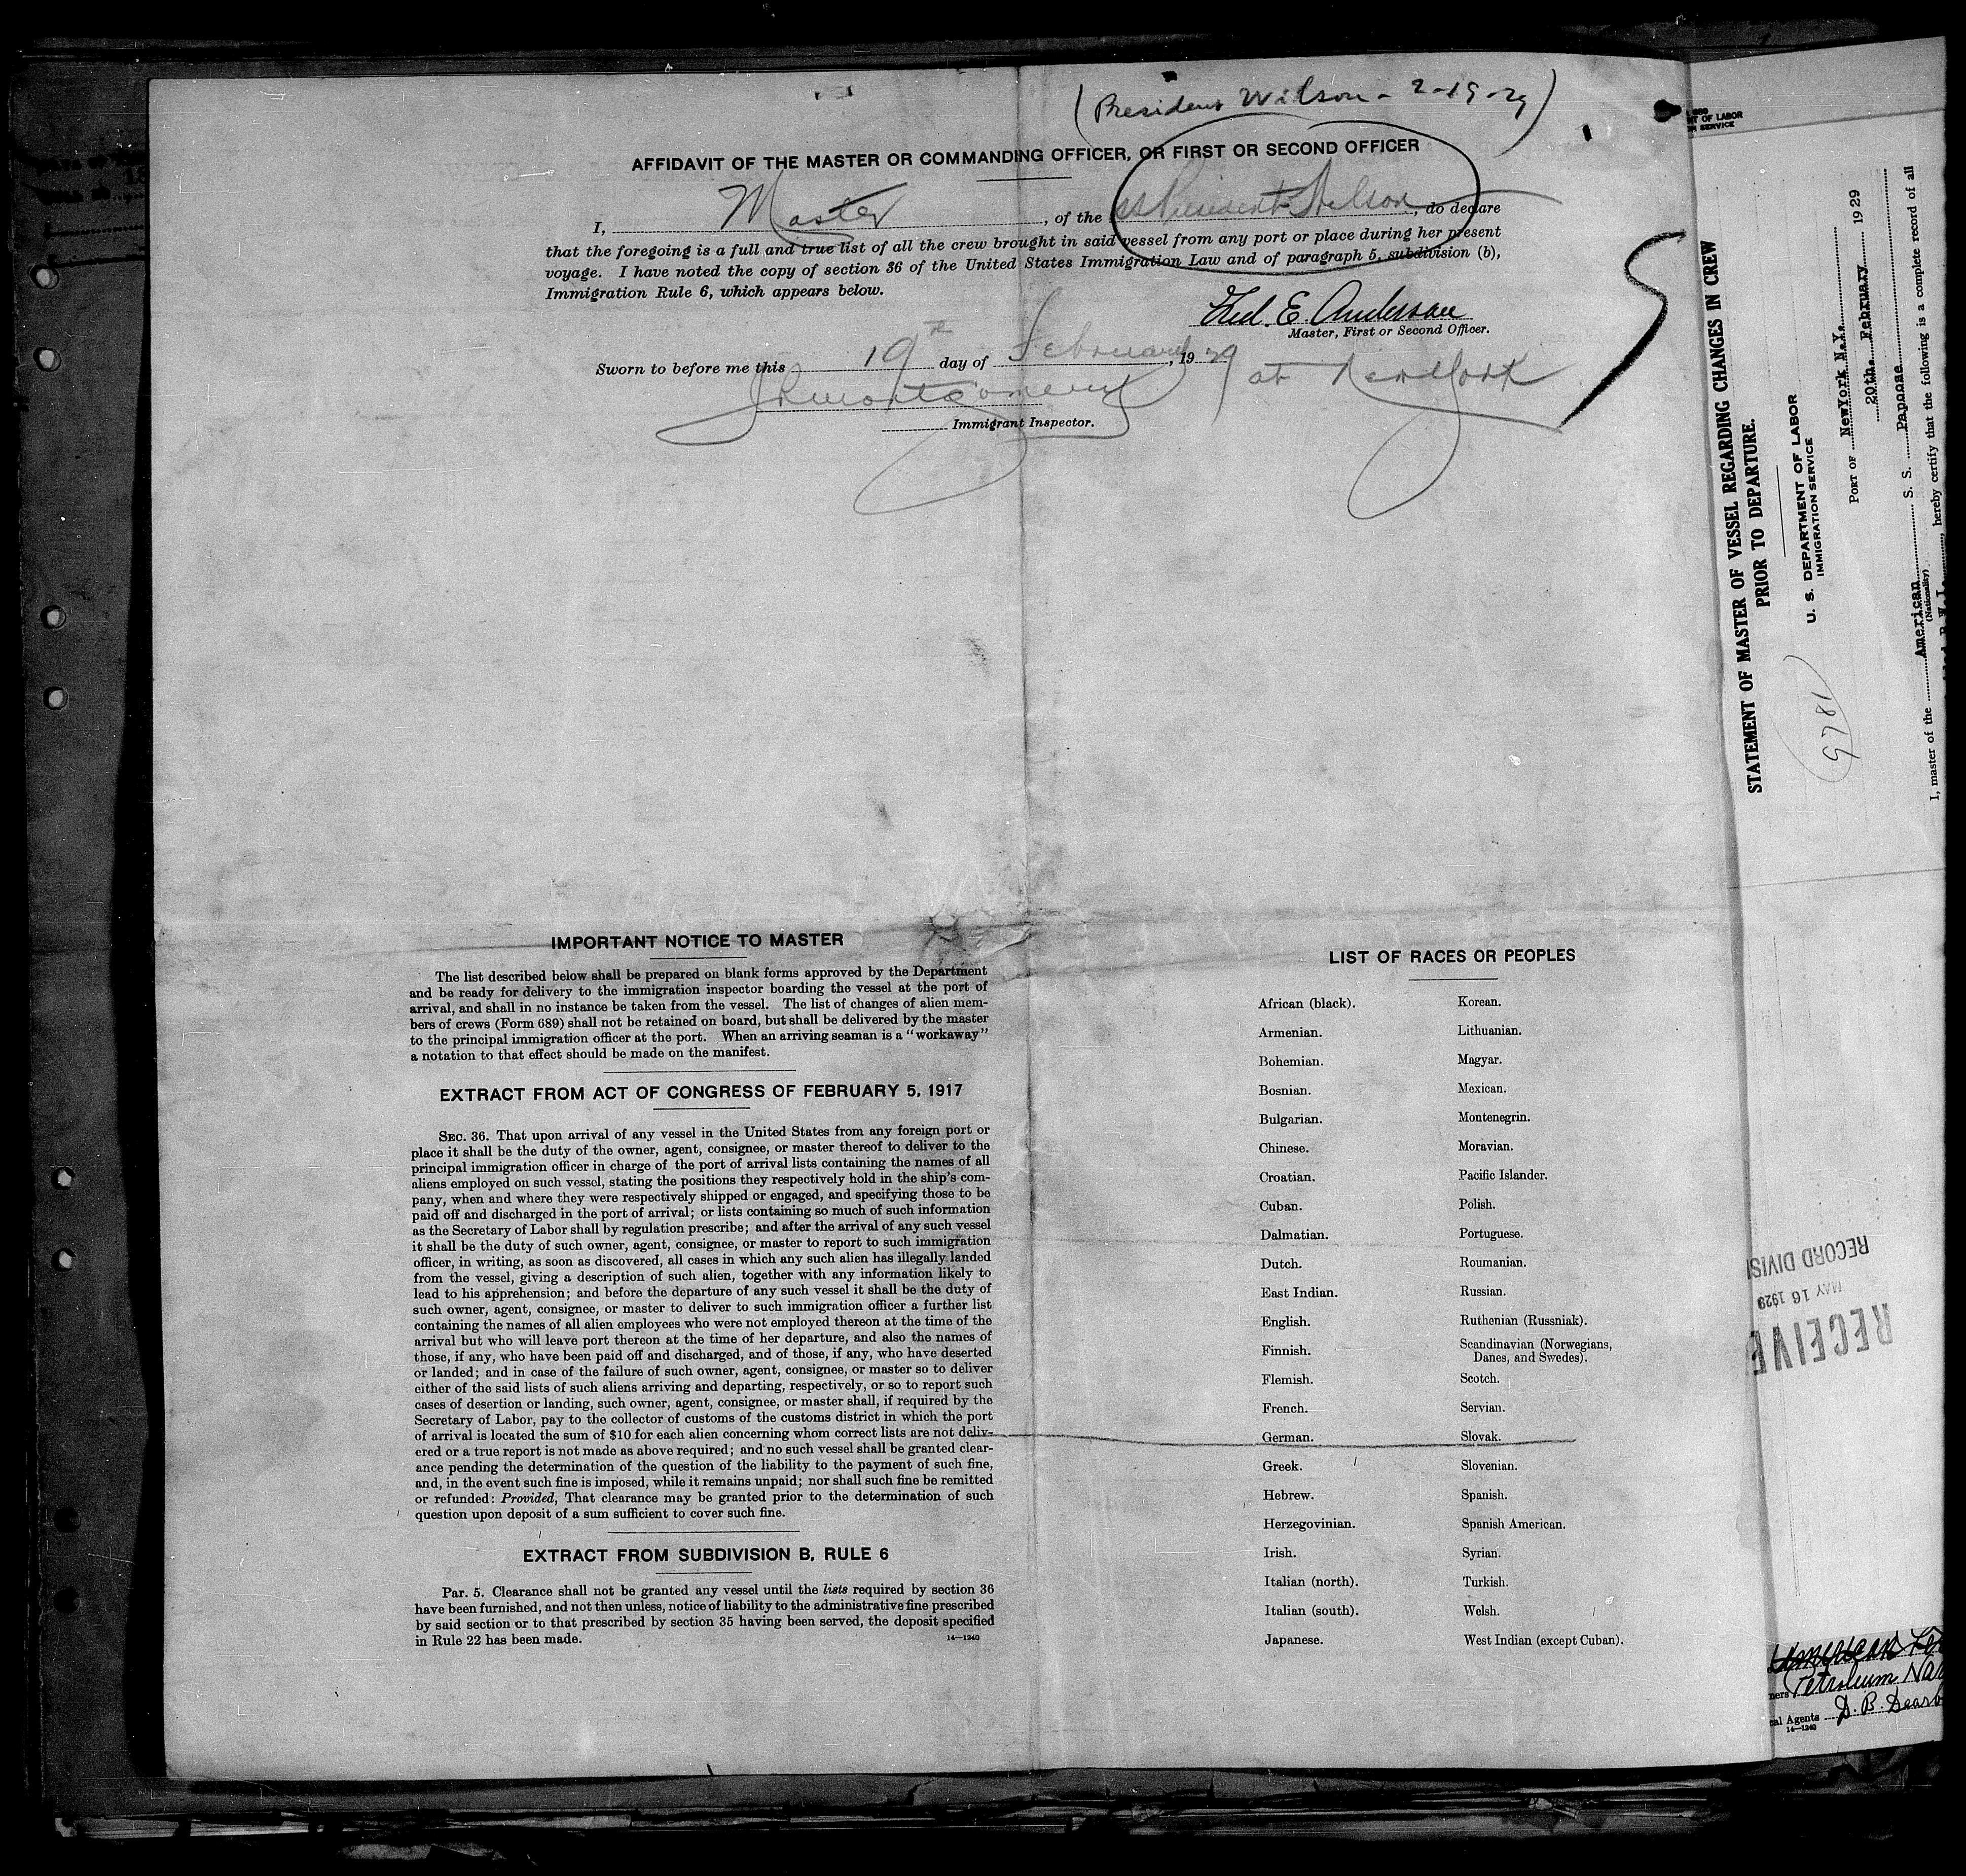 (President Wilson - 2-19-29)
AFFIDAVIT OF THE MASTER OR COMMANDING OFFICER, OR FIRST OR SECOND OFFICER
I, Master, of the SS President Wilson, do declare
that the foregoing is a full and true list of all the crew brought in said vessel from any port or place during her present
voyage. I have noted the copy of section 36 of the United States Immigration Law and of paragraph 5, subdivision (b),
Immigration Rule 6, which appears below.
E. Anderson
Master, First or Second Officer.
Sworn to before me this 19th day of February, 1929 at New York
Montgomery
Immigrant Inspector.
IMPORTANT NOTICE TO MASTER
The list described below shall be prepared on blank forms approved by the Department
and be ready for delivery to the immigration inspector boarding the vessel at the port of
arrival, and shall in no instance be taken from the vessel. The list of changes of alien mem-
bers of crews (Form 689) shall not be retained on board, but shall be delivered by the master
to the principal immigration officer at the port. When an arriving seaman is a "workaway"
a notation to that effect should be made on the manifest.
EXTRACT FROM ACT OF CONGRESS OF FEBRUARY 5, 1917
SEC. 36. That upon arrival of any vessel in the United States from any foreign port or
place it shall be the duty of the owner, agent, consignee, or master thereof to deliver to the
principal immigration officer in charge of the port of arrival lists containing the names of all
aliens employed on such vessel, stating the positions they respectively hold in the ship's com-
pany, when and where they were respectively shipped or engaged, and specifying those to be
paid off and discharged in the port of arrival; or lists containing so much of such information
as the Secretary of Labor shall by regulation prescribe; and after the arrival of any such vessel
it shall be the duty of such owner, agent, consignee, or master to report to such immigration
officer, in writing, as soon as discovered, all cases in which any such alien has illegally landed
from the vessel, giving a description of such alien, together with any information likely to
lead to his apprehension; and before the departure of any such vessel it shall be the duty of
such owner, agent, consignee, or master to deliver to such immigration officer a further list
containing the names of all alien employees who were not employed thereon at the time of the
arrival but who will leave port thereon at the time of her departure, and also the names of
those, if any, who have been paid off and discharged, and of those, if any, who have deserted
or landed; and in case of the failure of such owner, agent, consignee, or master so to deliver
either of the said lists of such aliens arriving and departing, respectively, or so to report such
cases of desertion or landing, such owner, agent, consignee, or master shall, if required by the
Secretary of Labor, pay to the collector of customs of the customs district in which the port
of arrival is located the sum of $10 for each alien concerning whom correct lists are not deliv-
ered or a true report is not made as above required; and no such vessel shall be granted clear-
ance pending the determination of the question of the liability to the payment of such fine,
and, in the event such fine is imposed, while it remains unpaid; nor shall such fine be remitted
or refunded: Provided, That clearance may be granted prior to the determination of such
question upon deposit of a sum sufficient to cover such fine.
EXTRACT FROM SUBDIVISION B, RULE 6
Par. 5. Clearance shall not be granted any vessel until the lists required by section 36
have been furnished, and not then unless, notice of liability to the administrative fine prescribed
by said section or to that prescribed by section 35 having been served, the deposit specified
in Rule 22 has been made.
14—1240
LIST OF RACES OR PEOPLES
African (black).
Armenian.
Bohemian.
Bosnian.
Bulgarian.
Chinese.
Croatian.
Cuban.
Dalmatian.
Dutch.
East Indian.
English.
Finnish.
Flemish.
French.
German.
Greek.
Hebrew.
Herzegovinian.
Irish.
Italian (north).
Italian (south).
Japanese.
Korean.
Lithuanian.
Magyar.
Mexican.
Montenegrin.
Moravian.
Pacific Islander.
Polish.
Portuguese.
Roumanian.
Russian.
Ruthenian (Russniak).
Scandinavian (Norwegians,
Danes, and Swedes).
Scotch.
Servian.
Slovak.
Slovenian.
Spanish.
Spanish American.
Syrian.
Turkish.
Welsh.
West Indian (except Cuban).
T OF LABOR
SERVICE
STATEMENT OF MASTER OF VESSEL REGARDING CHANGES IN CREW
PRIOR TO DEPARTURE.
U. S. DEPARTMENT OF LABOR
IMMIGRATION SERVICE
PORT OF NewYork N.Y.
20th. February 1929
I, master of the American S. S. Papoose
(Nationality)
hereby certify that the following is a complete record of all
RECEIVE
MAY 16 1929
RECORD DIVISI
American
ners Petroleum Nav
cal Agents D. B. Dearb
14—1240